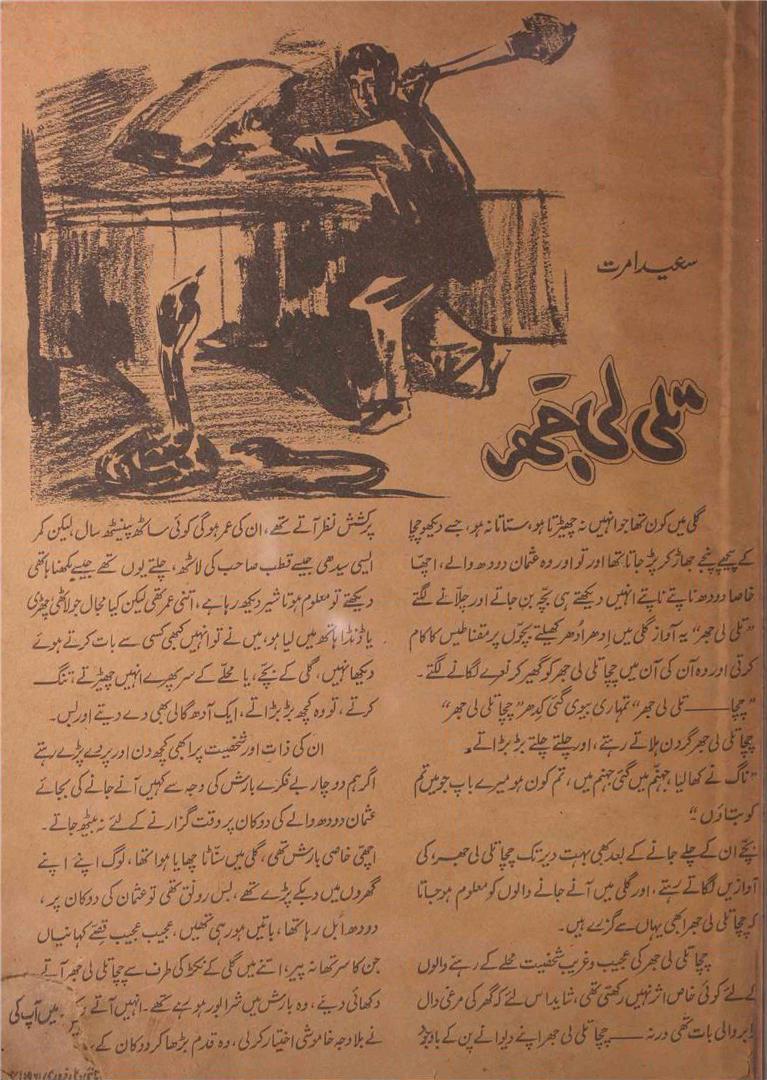 سعید امرت
تلی لی جھر
گلی میں کون تھا جو انہیں نہ چھیڑتا ہو، ستاتا نہ ہو، جسے دیکھو چچا
کے پیچھے پنجے جھاڑ کر پڑ جاتا تھا اور تو اور وہ عثمان دودھ والے، اچھا
خاصا دودھ ناپتے ناپتے انہیں دیکھتے ہی بچے بن جاتے اور چلّانے لگتے
”تلی لی جھر“ یہ آواز گلی میں اِدھر اُدھر کھیلتے بچوں پر مقناطیس کا کام
کرتی اور وہ آن کی آن میں چچا تلی لی جھر کو گھیر کر نعرے لگانے لگتے۔
”چچا —— تلی لی جھر“ تمہاری بیوی گئی کِدھر ”چچا تلی لی جھر“
چچا تلی لی جھر گردن ہلاتے رہتے، اور چلتے چلتے بڑبڑاتے
”ناگ نے کھا لیا، جہنّم میں گئی جہنم میں، تم کون ہو میرے باپ جو میں تم
کو بتاؤں۔“
بچے ان کے چلے جانے کے بعد بھی بہت دیر تک چچا تلی لی جھر، کی
آوازیں لگاتے رہتے، اور گلی میں آنے جانے والوں کو معلوم ہو جاتا
کہ چچا تلی لی جھر ابھی یہاں سے گزرے ہیں۔
چچا تلی لی جھر کی عجیب و غریب شخصیت محلے کے رہنے والوں
کے لئے کوئی خاص اثر نہیں رکھتی تھی، شاید اس لئے کہ گھر کی مرغی دال
برابر والی بات تھی ورنہ —— چچا تلی لی جھر اپنے دیوانے پن کے باوجود
پرکشش نظر آتے تھے، ان کی عمر ہوگی کوئی ساٹھ پینسٹھ سال، لیکن کمر
ایسی سیدھی جیسے قطب صاحب کی لاٹھ، چلتے یوں تھے جیسے مکھنا ہاتھی
دیکھتے تو معلوم ہوتا شیر دیکھ رہا ہے، اتنی عمر تھی لیکن کیا مجال جو لاٹھی چھڑی
یا ڈنڈا ہاتھ میں لیا ہو، میں نے تو انہیں کبھی کسی سے بات کرتے ہوئے
دیکھا نہیں، گلی کے بچے، یا محلے کے سر پھرے انہیں چھیڑتے، تنگ
کرتے، تو وہ کچھ بڑبڑاتے، ایک آدھ گالی بھی دے دیتے اور بس۔
ان کی ذات اور شخصیت پر ابھی کچھ دن اور پردے پڑے رہتے
اگر ہم دو چار بے فکرے بارش کی وجہ سے کہیں آنے جانے کی بجائے
عثمان دودھ والے کی دوکان پر وقت گزارنے کے لئے نہ بیٹھ جاتے۔
اچھی خاصی بارش تھی، گلی میں سنّاٹا چھایا ہوا تھا، لوگ اپنے اپنے
گھروں میں دبکے پڑے تھے، بس رونق تھی تو عثمان کی دوکان پر،
دودھ اُبل رہا تھا، باتیں ہو رہی تھیں، عجیب عجیب قصے کہانیاں
جن کا سر تھا نہ پیر، اتنے میں گلی کے نکڑ کی طرف سے چچا تلی لی جھر آتے
دکھائی دیئے، وہ بارش میں شرابور ہو رہے تھے۔ انہیں آتے میں آپ کی
نے بلا وجہ خاموشی اختیار کر لی، وہ قدم بڑھا کر دوکان کے